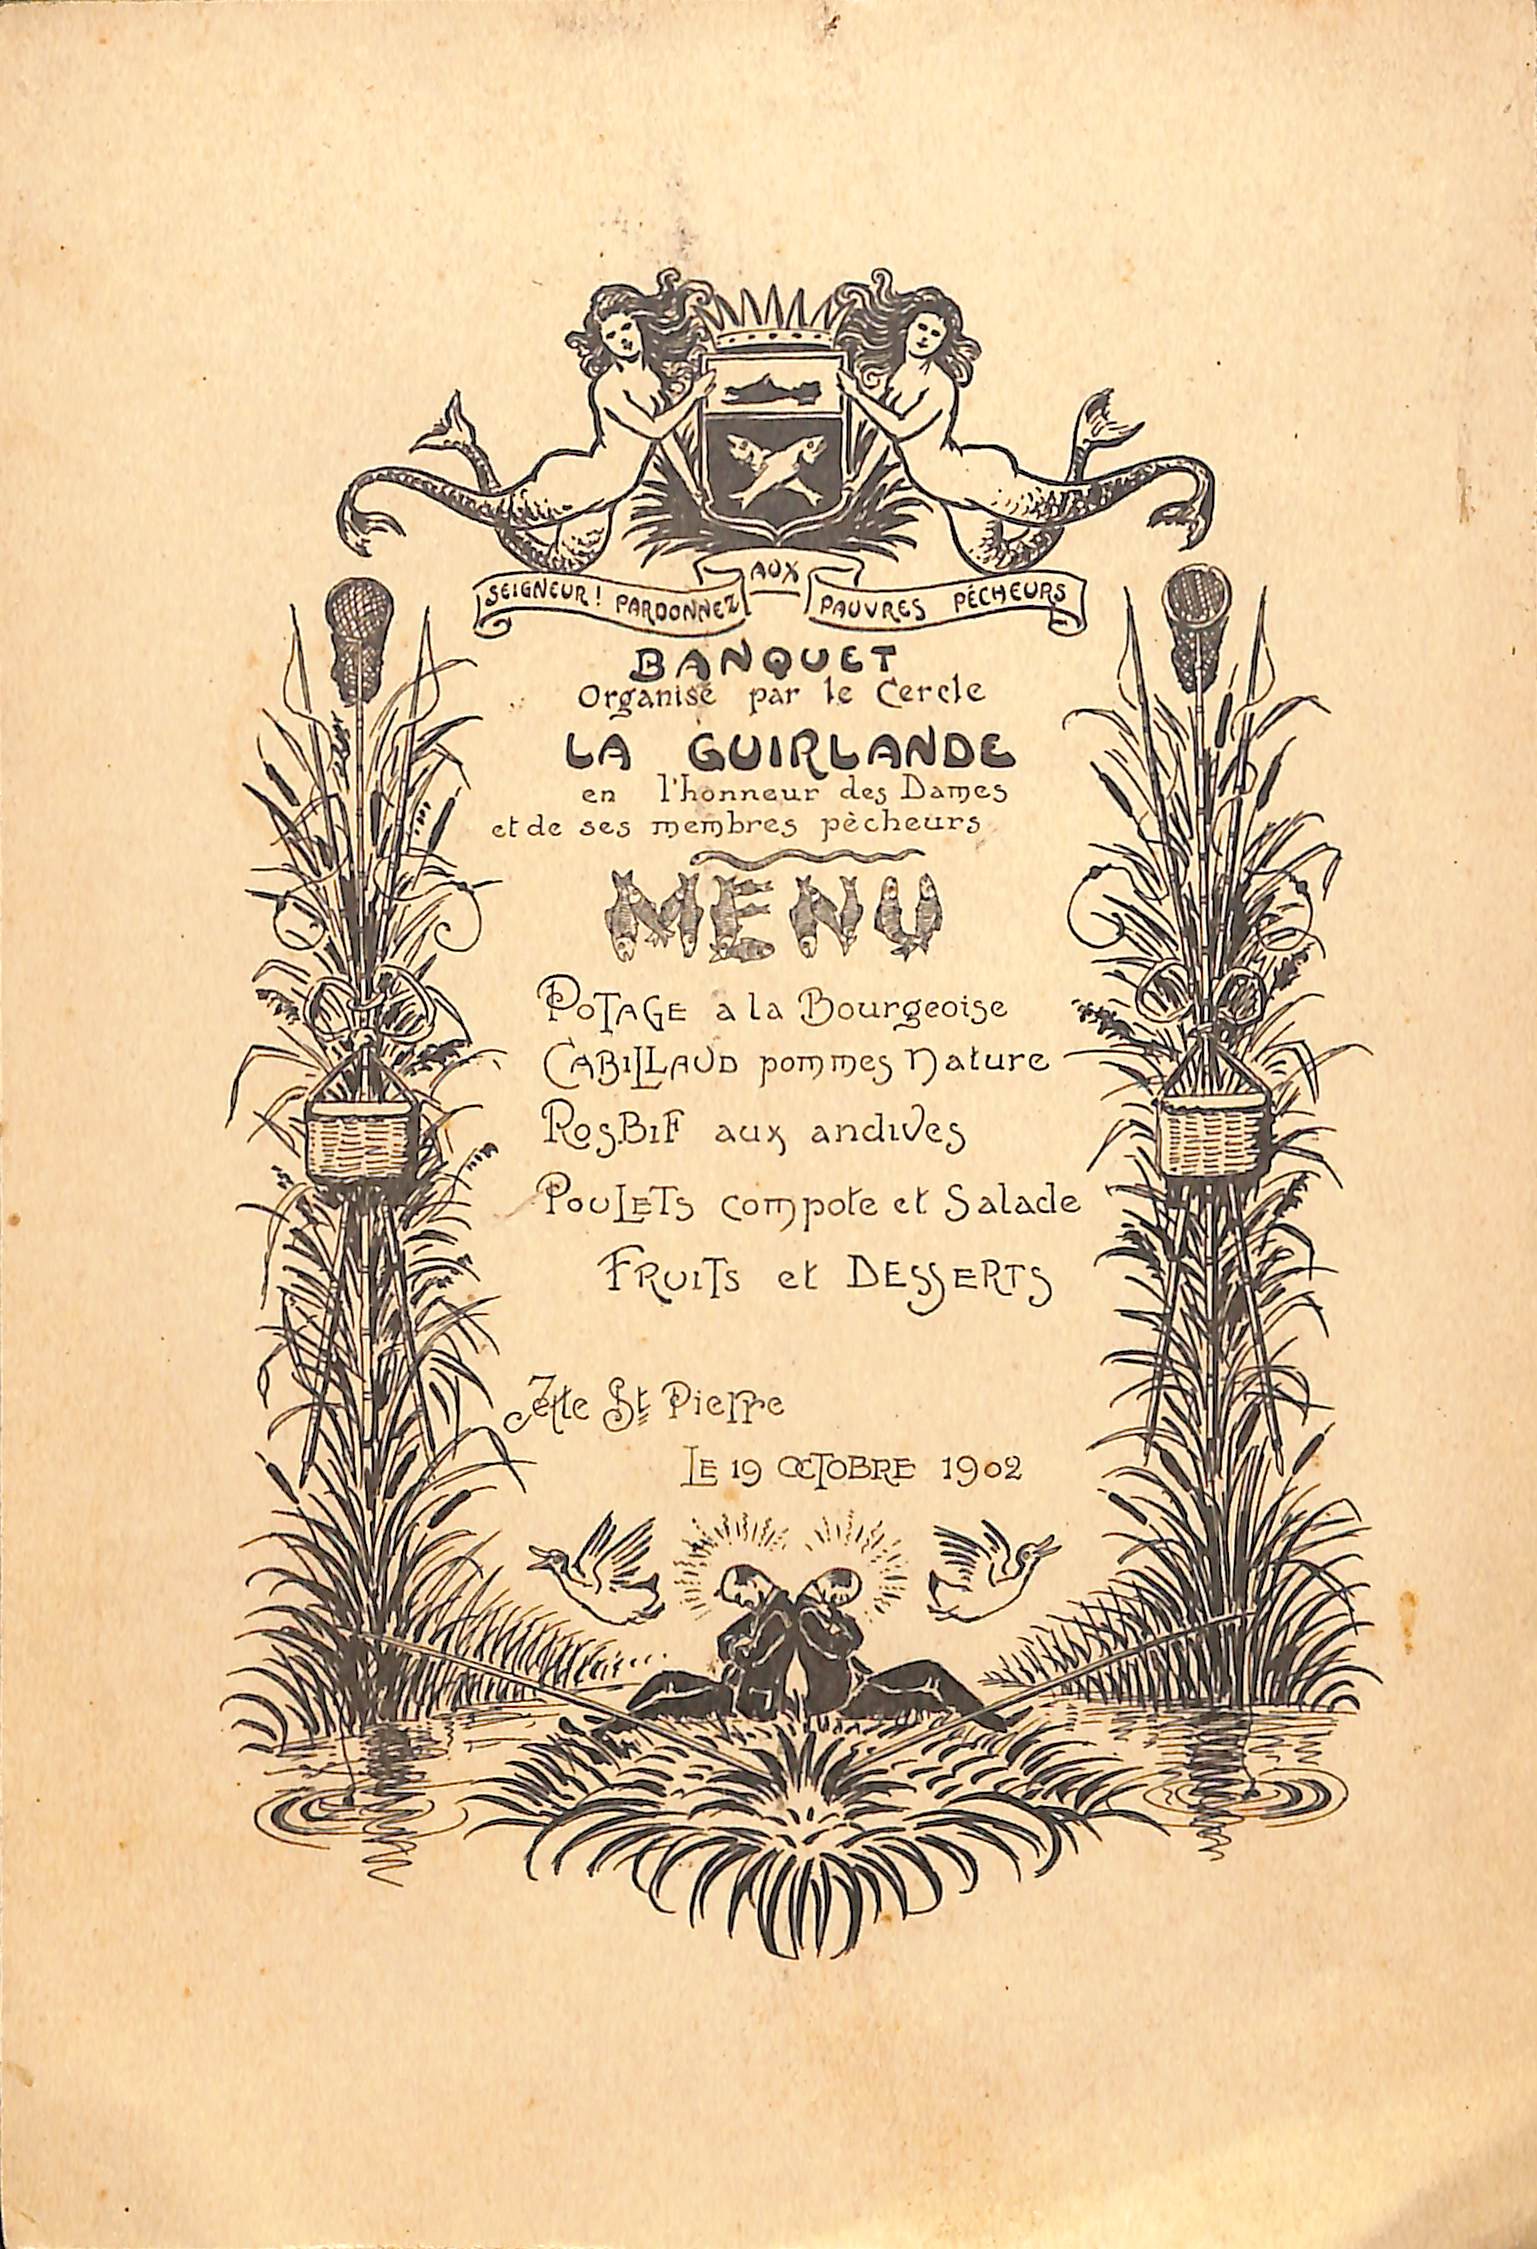 SEIGNEUR! PARDONNEZ AUX PAUVRES PÉCHEURS
BANQUET
Organisé par le Cercle
LA GUIRLANDE
en l'honneur des Dames
et de ses membres pècheurs
MENU
POTAGE a la Bourgeoise
CABILLAUD pommes Nature
ROSBIF aux andives
POULETS compote et Salade
FRUITS et DESSERTS
Jette St Pierre
LE 19 OCTOBRE 1902